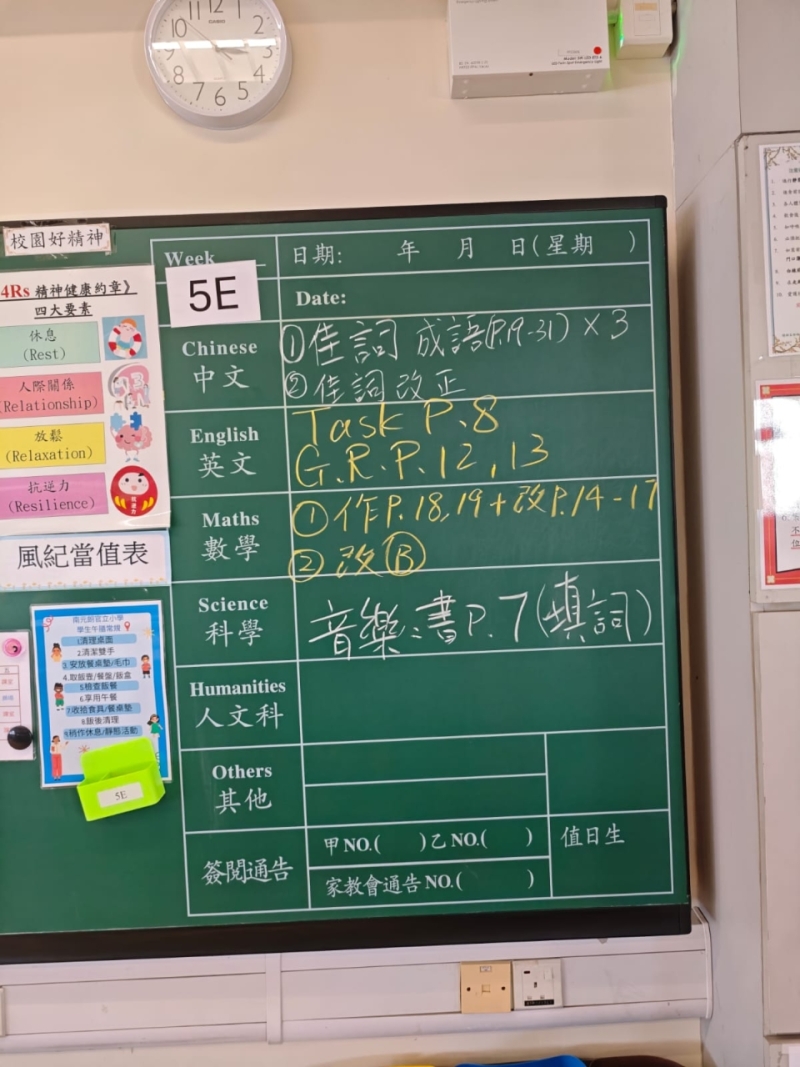 12
11
1
10
2
9
3
8
4
7
6
5
CASIO
校園好精神
4Rs 精神健康約章》
四大要素
休息
(Rest)
人際關係
(Relationship)
放鬆
(Relaxation)
抗逆力
(Resilience)
風紀當值表
學生午膳常規
1.清理桌面
2.清潔雙手
3.安放餐桌墊/毛巾
4.取飯壺/餐盤/飯盒
5.檢查飯餐
6.享用午餐
7.收拾食具/餐桌墊
8.飯後清理
9.稍作休息/靜態活動
5E
Week
5E
日期: 年 月 日(星期 )
Date:
Chinese
中文
①佳詞 成語(P.19-31) × 3
②佳詞改正
English
英文
Task P.8
G.R.P.12,13
Maths
數學
①作P.18,19+改P.14-17
②改Ⓑ
Science
科學
音樂:書P.7(填詞)
Humanities
人文科
Others
其他
簽閱通告
甲NO.( )乙NO.( )
家教會通告NO.( )
值日生